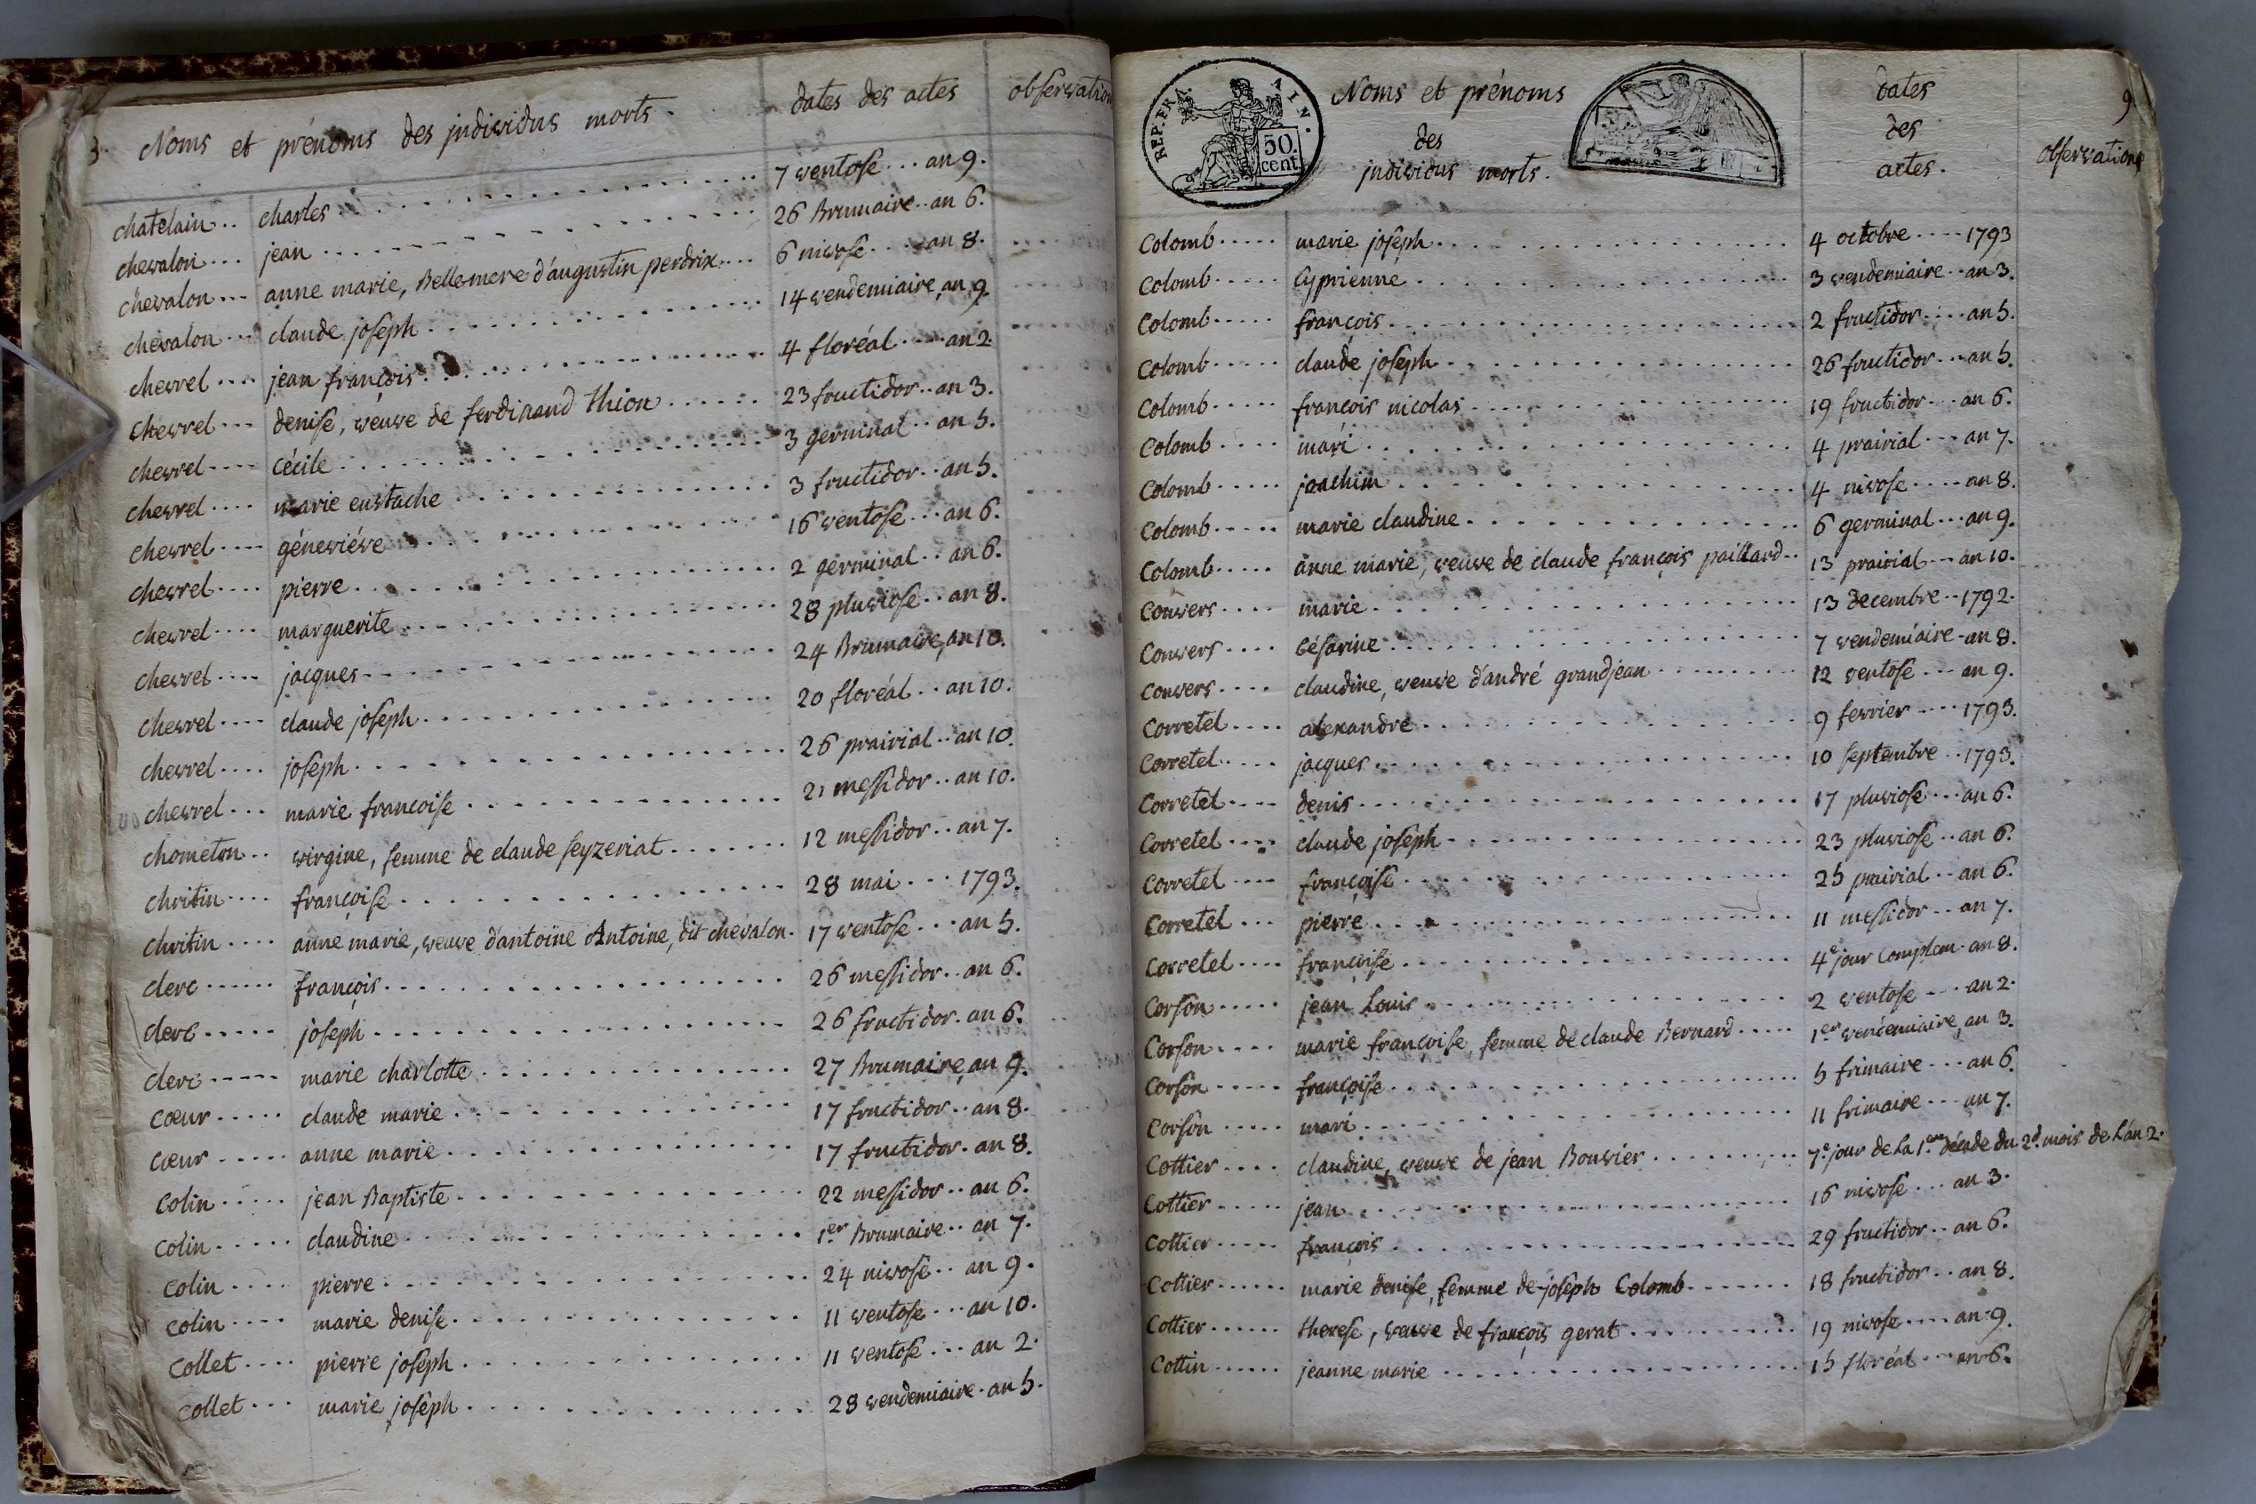 3. Noms et prénoms des individus morts. dates des actes observation
chatelain.. charles 7 ventose ... an 9.
chevalon ... jean 26 Brumaire .. an 6.
chevalon ... anne marie, Belle-mere d'augustin perdrix 6 nivose .... an 8.
chevalon ... claude joseph 14 vendemiaire, an 9.
chevrel .... jean françois 4 floréal .... an 2.
chevrel ... denise, veuve de ferdinand thion 23 fructidor .. an 3.
chevrel .... cécile 3 germinal .. an 5.
chevrel .... marie eustache 3 fructidor .. an 5.
chevrel .... génevieve 16 ventose ... an 6.
chevrel .... pierre 2 germinal .. an 6.
chevrel .... marguerite 28 pluviose .. an 8.
chevrel .... jacques 24 Brumaire, an 10.
chevrel .... claude joseph 20 floréal .. an 10.
chevrel .... joseph 26 prairial .. an 10.
chevrel ... marie francoise 21 messidor .. an 10.
chometon .. virgine, femme de claude seyzeriat 12 messidor .. an 7.
chritin .... françoise 28 mai ... 1793.
chritin .... anne marie, veuve d'antoine Antoine, dit chevalon. 17 ventose ... an 5.
clerc ...... françois 26 messidor .. an 6.
clerc ..... joseph 26 fructidor . an 6.
clerc ..... marie charlotte 27 Brumaire, an 9.
cœur ..... claude marie 17 fructidor .. an 8.
cœur ..... anne marie 17 fructidor . an 8.
colin ..... jean Baptiste 22 messidor .. an 6.
colin ..... claudine 1er Brumaire .. an 7.
colin .... pierre 24 nivose .. an 9.
colin .... marie denise 11 ventose ... an 10.
collet .... pierre joseph 11 ventose ... an 2.
collet ... marie joseph 28 vendemiaire . an 5.
REP. FRA. AIN.
50. cent.
Noms et prénoms
des
individus morts.
dates
des
actes.
9
observations
Colomb ..... marie joseph 4 octobre .... 1793
Colomb ..... Cyprienne 3 vendemiaire .. an 3.
Colomb ..... françois 2 fructidor .... an 5.
Colomb ..... claude joseph 26 fructidor ... an 5.
Colomb ..... françois nicolas 19 fructidor ... an 6.
Colomb ..... mari 4 prairial ... an 7.
Colomb ..... joachim 4 nivose .... an 8.
Colomb ..... marie claudine 6 germinal ... an 9.
Colomb ..... anne marie, veuve de claude françois paillard .. 13 prairial ... an 10.
Convers .... marie 13 decembre .. 1792.
Convers .... Césarine 7 vendemiaire - an 8.
Convers .... claudine, veuve d'andré grandjean 12 ventose ... an 9.
Corretel .... alexandre 9 fevrier .... 1793.
Corretel .... jacques 10 septembre .. 1793.
Corretel .... denis 17 pluviose ... an 6.
Corretel .... claude joseph 23 pluviose .. an 6.
Corretel .... françoise 25 prairial .. an 6.
Corretel ... pierre 11 messidor .. an 7.
Corretel .... françoise 4e jour Complem . an 8.
Corson ..... jean Louis 2 ventose ... an 2.
Corson .... marie françoise, femme de claude Bernard ..... 1er vendemiaire, an 3.
Corson ..... françoise 5 frimaire ... an 6.
Corson ..... mari 11 frimaire ... an 7.
Cottier .... claudine, veuve de jean Bouvier 7e. jour de la 1ere décade du 2d. mois de l'an 2.
Cottier ..... jean 16 nivose ... an 3.
Cottier ..... françois 29 fructidor .. an 6.
Cottier ...... marie denise, femme de joseph Colomb 18 fructidor .. an 8.
Cottier ...... therese, veuve de françois gerat 19 nivose .... an 9.
Cottin ...... jeanne marie 15 floréal ... an 6.